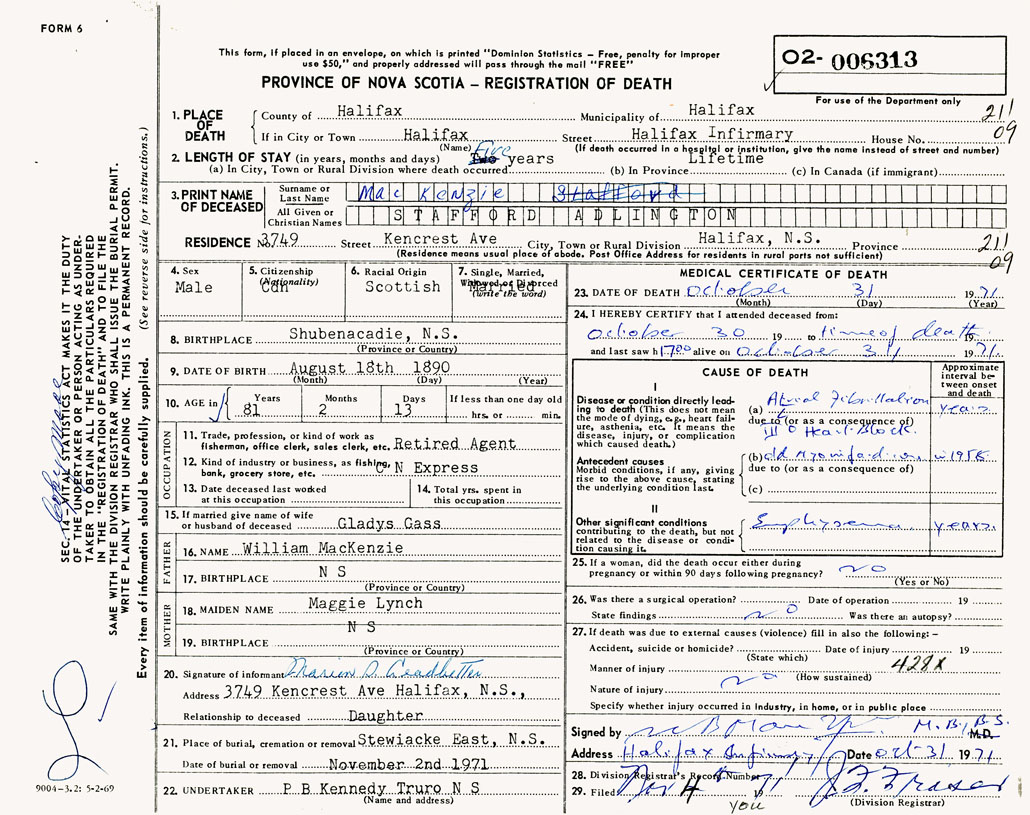 FORM 6
This form, if placed in an envelope, on which is printed "Dominion Statistics – Free, penalty for improper
use $50," and properly addressed will pass through the mail "FREE"
PROVINCE OF NOVA SCOTIA – REGISTRATION OF DEATH
02- 006313
For use of the Department only
1. PLACE OF DEATH County of Halifax Municipality of Halifax 211
If in City or Town Halifax Street Halifax Infirmary House No. 09
(Name) (If death occurred in a hospital or institution, give the name instead of street and number)
2. LENGTH OF STAY (in years, months and days) Five Two years Lifetime
(a) In City, Town or Rural Division where death occurred (b) In Province (c) In Canada (if immigrant)
3. PRINT NAME OF DECEASED Surname or Last Name MacKenzie Stafford
All Given or Christian Names STAFFORD ADLINGTON
RESIDENCE N 3749 Street Kencrest Ave City, Town or Rural Division Halifax, N.S. Province 211
(Residence means usual place of abode. Post Office Address for residents in rural parts not sufficient) 09
4. Sex Male
5. Citizenship (Nationality) Cdn
6. Racial Origin Scottish
7. Single, Married, Widowed or Divorced (write the word) Married
8. BIRTHPLACE Shubenacadie, N.S.
(Province or Country)
9. DATE OF BIRTH August 18th 1890
(Month) (Day) (Year)
10. AGE in Years 81 Months 2 Days 13 If less than one day old
hrs. or min.
OCCUPATION
11. Trade, profession, or kind of work as
fisherman, office clerk, sales clerk, etc. Retired Agent
12. Kind of industry or business, as fishing,
bank, grocery store, etc. C N Express
13. Date deceased last worked
at this occupation
14. Total yrs. spent in
this occupation
15. If married give name of wife
or husband of deceased Gladys Gass
FATHER
16. NAME William MacKenzie
17. BIRTHPLACE N S
(Province or Country)
MOTHER
18. MAIDEN NAME Maggie Lynch
19. BIRTHPLACE N S
(Province or Country)
20. Signature of informant Marion D. Leadbetter
Address 3749 Kencrest Ave Halifax, N.S.,
Relationship to deceased Daughter
21. Place of burial, cremation or removal Stewiacke East, N.S.
Date of burial or removal November 2nd 1971
22. UNDERTAKER P B Kennedy Truro N S
(Name and address)
MEDICAL CERTIFICATE OF DEATH
23. DATE OF DEATH October 31 1971
(Month) (Day) (Year)
24. I HEREBY CERTIFY that I attended deceased from:
October 30 19 to time of death
and last saw h alive on October 31 1971.
CAUSE OF DEATH
Approximate interval between onset and death
I
Disease or condition directly leading
to death (This does not mean
the mode of dying, e.g., heart failure,
asthenia, etc. It means the
disease, injury, or complication
which caused death.)
(a) Atrial Fibrillation years
due to (or as a consequence of)
III° Heart Block
Antecedent causes
Morbid conditions, if any, giving
rise to the above cause, stating
the underlying condition last.
(b) old
due to (or as a consequence of)
(c)
II
Other significant conditions
contributing to the death, but not
related to the disease or condition
causing it.
Emphysema years
25. If a woman, did the death occur either during
pregnancy or within 90 days following pregnancy? no
(Yes or No)
26. Was there a surgical operation? Date of operation 19
State findings no Was there an autopsy?
27. If death was due to external causes (violence) fill in also the following: –
Accident, suicide or homicide? Date of injury 19
(State which)
Manner of injury 428X
(How sustained)
Nature of injury no
Specify whether injury occurred in Industry, in home, or in public place
Signed by M.B., B.S. M.D.
Address Halifax Infirmary Date Oct-31 1971
28. Division Registrar's Record Number
29. Filed Nov 4 1971 J. F. Fraser
(Division Registrar)
you
SEC. 14 – VITAL STATISTICS ACT MAKES IT THE DUTY
OF THE UNDERTAKER OR PERSON ACTING AS UNDER-
TAKER TO OBTAIN ALL THE PARTICULARS REQUIRED
IN THE "REGISTRATION OF DEATH" AND TO FILE THE
SAME WITH THE DIVISION REGISTRAR WHO SHALL ISSUE THE BURIAL PERMIT.
WRITE PLAINLY WITH UNFADING INK. THIS IS A PERMANENT RECORD.
Every item of information should be carefully supplied. (See reverse side for instructions.)
9004-3.2: 5-2-69